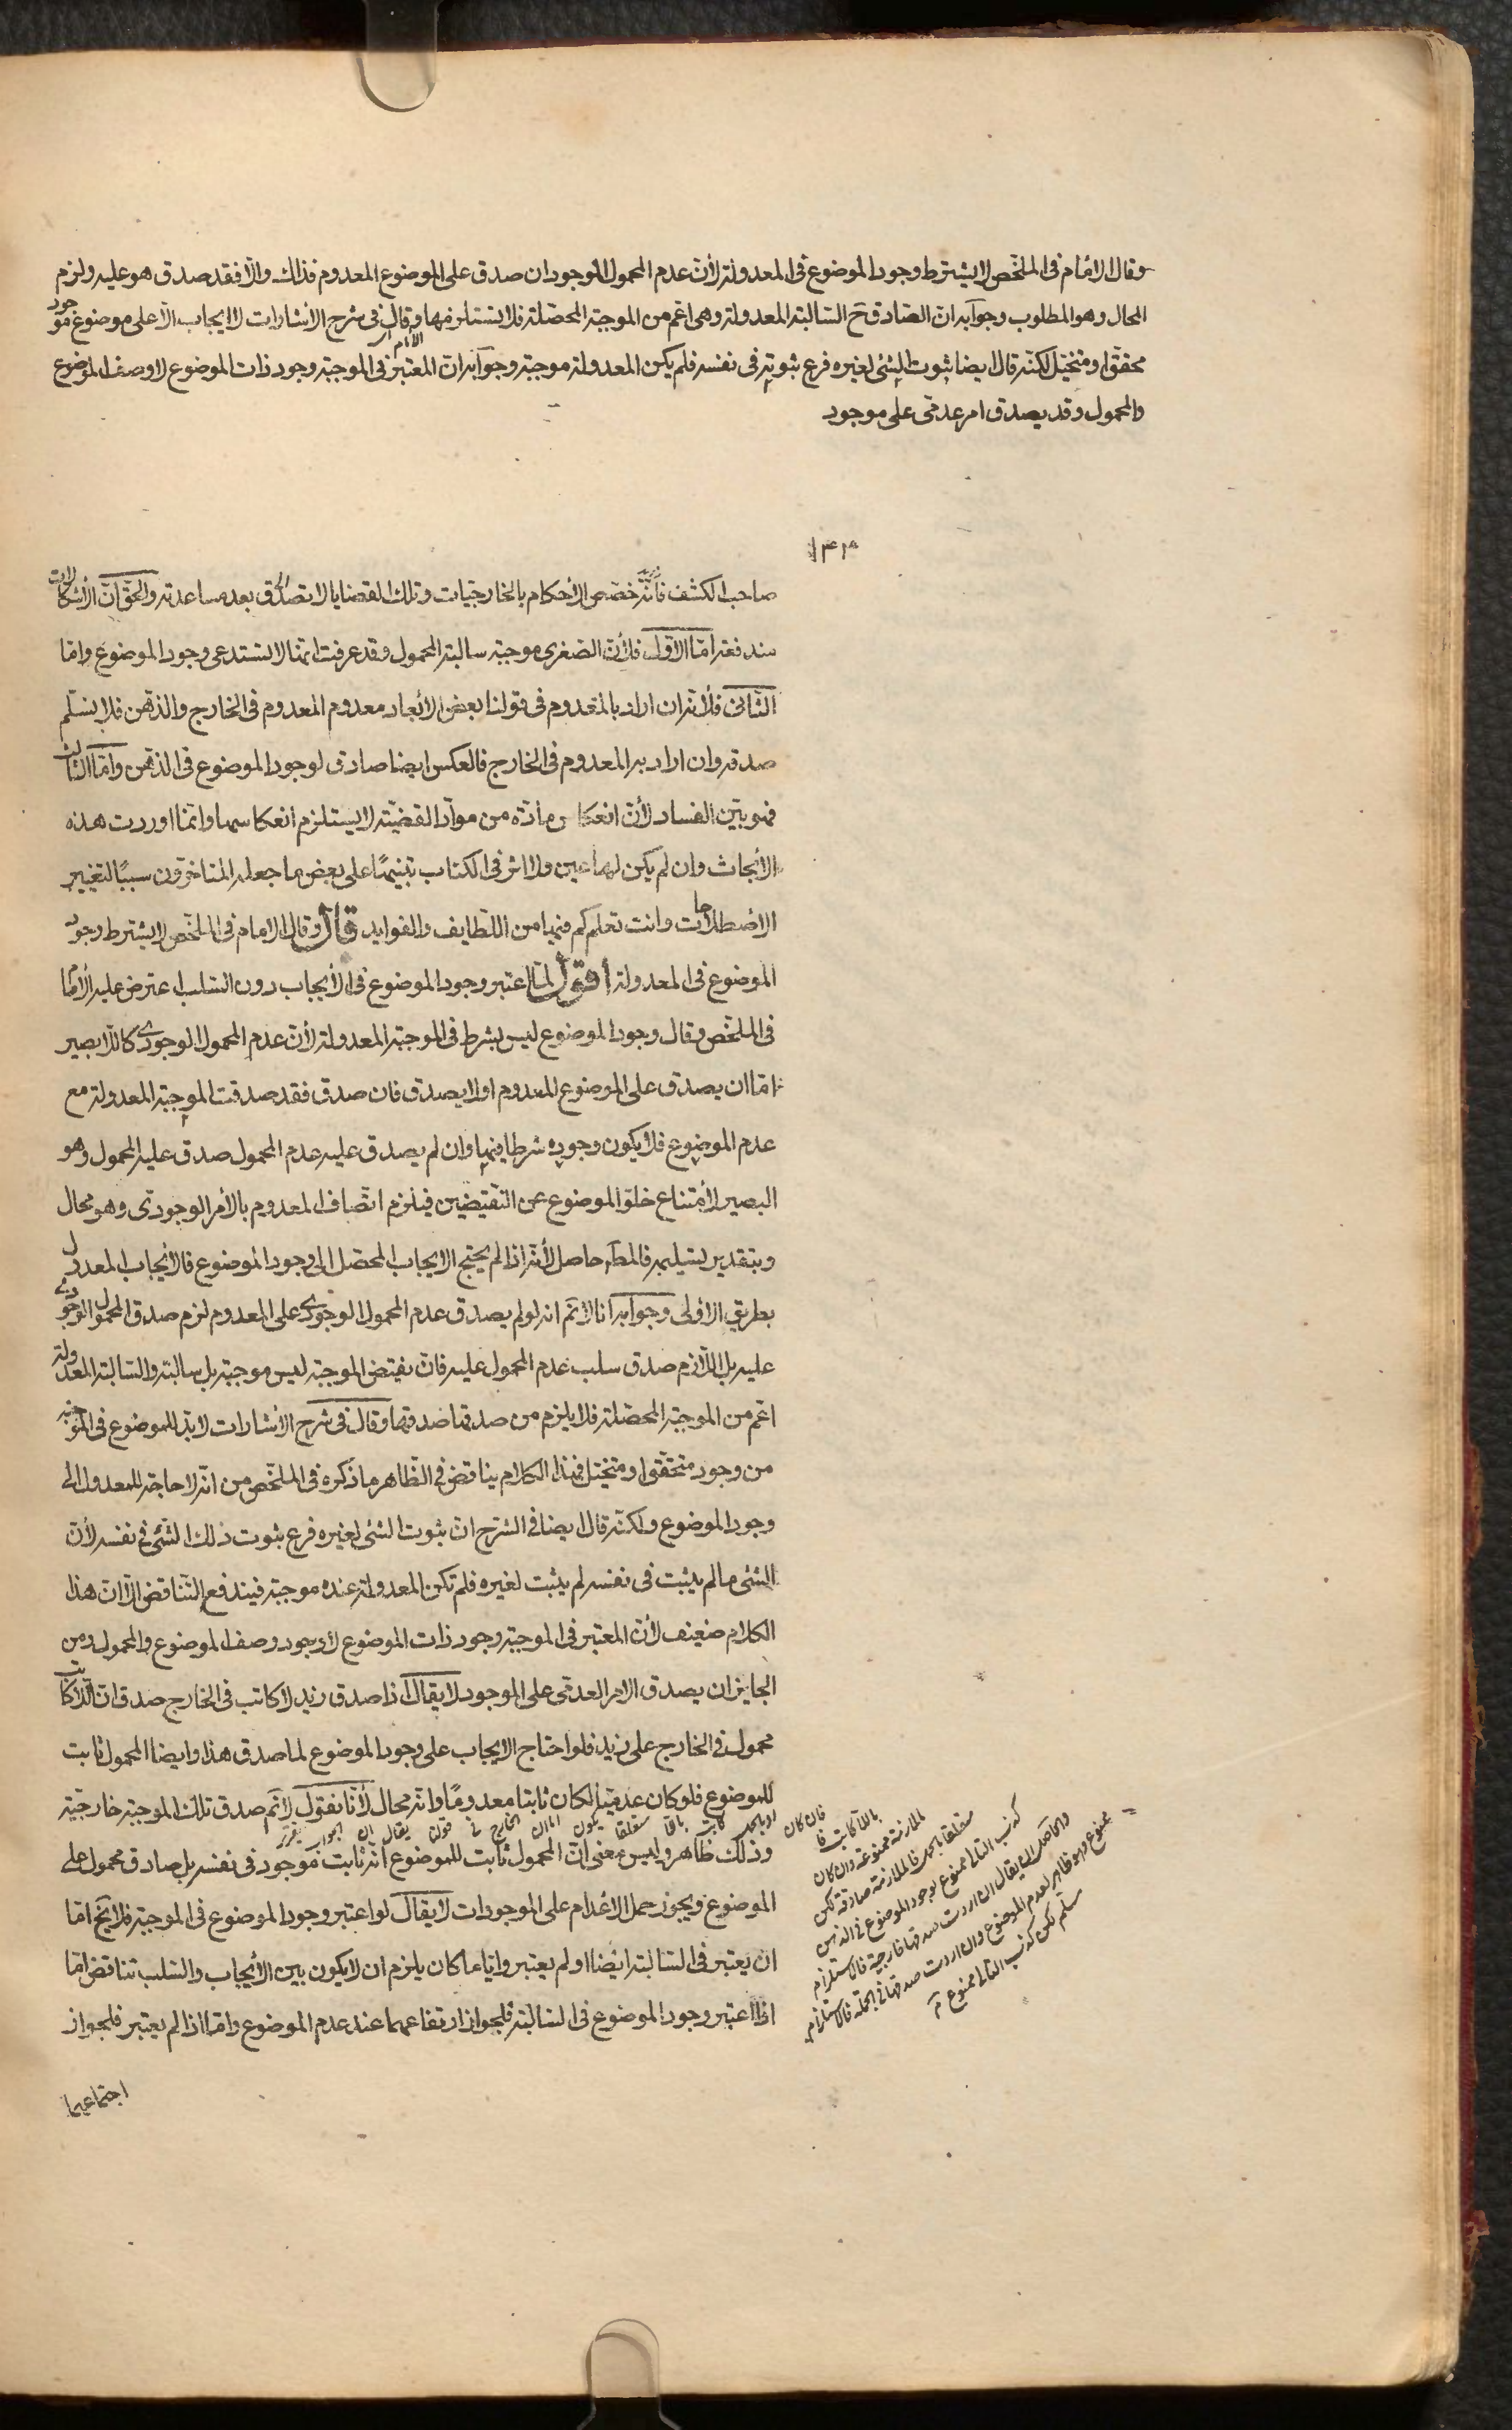 وقال الامام فى الملخّص لا يشترط وجود الموضوع فى المعدولة لأنّ عدم المحمول الموجود ان صدق على الموضوع المعدوم فذاك والّا فقد صدق هو عليه ولزم
المحال وهو المطلوب وجوابه انّ الصّادق ح السّالبة المعدولة وهى اعمّ من الموجبة المحصّلة فلا تستلزمها وقال الامام فى شرح الاشارات لا ايجاب الّا على موضوع موجود
محقّق او متخيّل لكنّه قال ايضا ثبوت الشّئ لغيره فرع ثبوته فى نفسه فلم يكن المعدولة موجبة وجوابه انّ المعتبر فى الموجبة وجود ذات الموضوع لا وصف الموضوع
والمحمول وقد يصدق امر عدمّى على موجود
صاحب الكشف فأنّه خصّص الأحكام بالخارجيّات وتلك القضايا لا تصدّق بعد مساعدته والحقّ انّ الأشكالات
مندفعة امّا الأوّل فلأنّ الصّغرى موجبة سالبة المحمول وقد عرفت انّها لا تستدعى وجود الموضوع وامّا
الثّانى فلأنّه ان اراد بالمعدوم فى قولنا بعض الأبعاد معدوم المعدوم فى الخارج والذّهن فلا نسلّم
صدقه وان اراد به المعدوم فى الخارج فالعكس ايضا صادق لوجود الموضوع فى الذّهن وامّا الثّالث
فهو بيّن الفساد لأنّ انعكاس مادّة من موادّ القضيّة لا يستلزم انعكاسها وانّما اوردت هذه
الأبحاث وان لم يكن لها عين ولا اثر فى الكتاب تنبيهًا على بعض ما جعله المتأخّرون سببًا لتغيير
الأصطلاحات وانت تعلم كم فيها من اللّطايف والفوايد قال وقال الامام فى الملخّص لا يشترط وجود
الموضوع فى المعدولة اقول لمّا اعتبر وجود الموضوع فى الأيجاب دون السّلب اعترض عليه الأمام
فى الملخّص وقال وجود الموضوع ليس بشرط فى الموجبة المعدولة لأنّ عدم المحمول الوجودى كاللا بصير
امّا ان يصدق على الموضوع المعدوم او لا يصدق فان صدق فقد صدقت الموجبة المعدولة مع
عدم الموضوع فلا يكون وجوده شرطا فيها وان لم يصدق عليه عدم المحمول صدق عليه المحمول وهو
البصير لأمتناع خلوّ الموضوع عن النّقيضين فيلزم اتّصاف المعدوم بالأمر الوجودّى وهو محال
وبتقدير تسليمه فالمطّ حاصل لأنّه اذا لم يحتج الايجاب المحصّل الى وجود الموضوع فالأيجاب المعدول
بطريق الأولى وجوابه انّا لا نّم انه لو لم يصدق عدم المحمول الوجودى على المعدوم لزم صدق المحمول الوجودى
عليه بل اللّازم صدق سلب عدم المحمول عليه فانّ نقيض الموجبة ليس موجبة بل سالبة والسّالبة المعدولة
اعّم من الموجبة المحصّلة فلا يلزم من صدقها صدقها وقال فى شرح الأشارات لا بدّ للموضوع فى الموجبة
من وجود متحقّق او متخيّل فهذا الكلام يناقض فى الظّاهر ما ذكره فى الملخّص من انّه لا حاجة للمعدول الى
وجود الموضوع ولكنّه قال ايضا فى الشّرح انّ ثبوت الشّئ لغيره فرع ثبوت ذلك الشّئ فى نفسه لأنّ
الشّئ ما لم يثبت فى نفسه لم يثبت لغيره فلم تكن المعدولة عنده موجبة فيندفع التّناقض الّا انّ هذا
الكلام ضعيف لأنّ المعتبر فى الموجبة وجود ذات الموضوع لا وجود وصف الموضوع والمحمول ومن
الجايز ان يصدق الامر العدمّى على الموجود لا يقال اذا صدق زيد لا كاتب فى الخارج صدق انّ اللّا كاتب
محمول فى الخارج على زيد فلو احتاج الايجاب على وجود الموضوع لما صدق هذا وايضا المحمول ثابت
للموضوع فلو كان عدميّا لكان ثابتا معدومًا وانّه محال لأنّا نقول لا نّم صدق تلك الموجبة خارجيّة
وذلك ظاهر وليس معنى انّ المحمول ثابت للموضوع انّه ثابت موجود فى نفسه بل صادق محمول على
الموضوع ويجوز حمل الأعدام على الموجودات لا يقال لو اعتبر وجود الموضوع فى الموجبة فلا يخّ امّا
ان يعتبر فى السّالبة ايضا او لم يعتبر وايّا ما كان يلزم ان لا يكون بين الأيجاب والسّلب تناقض امّا
اذا اعتبر وجود الموضوع فى السّالبة فلجواز ارتفاعهما عند عدم الموضوع وامّا اذا لم يعتبر فلجواز
اجتماعهما
الملازمة ممنوعة وان كان
متعلقا بالحمل فالملازمة صادقة لكن
كذب التالى ممنوع لوجود الموضوع فى الذهن
والحاصل ان يقال ان اردت صدقها خارجية فالاستلزام
ممنوع وهو ظاهر لعدم الموضوع وان اردت صدقها فى الجملة فالاستلزام
مسلم لكن كذب التالى ممنوع